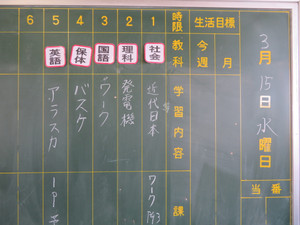 3月15日水曜日
当番
生活目標
今週
月
時限
教科
学習内容
課
1
社会
近代日本
ワーク
2
理科
発電機
3
国語
ワーク
4
保体
バスケ
5
英語
アラスカ
6